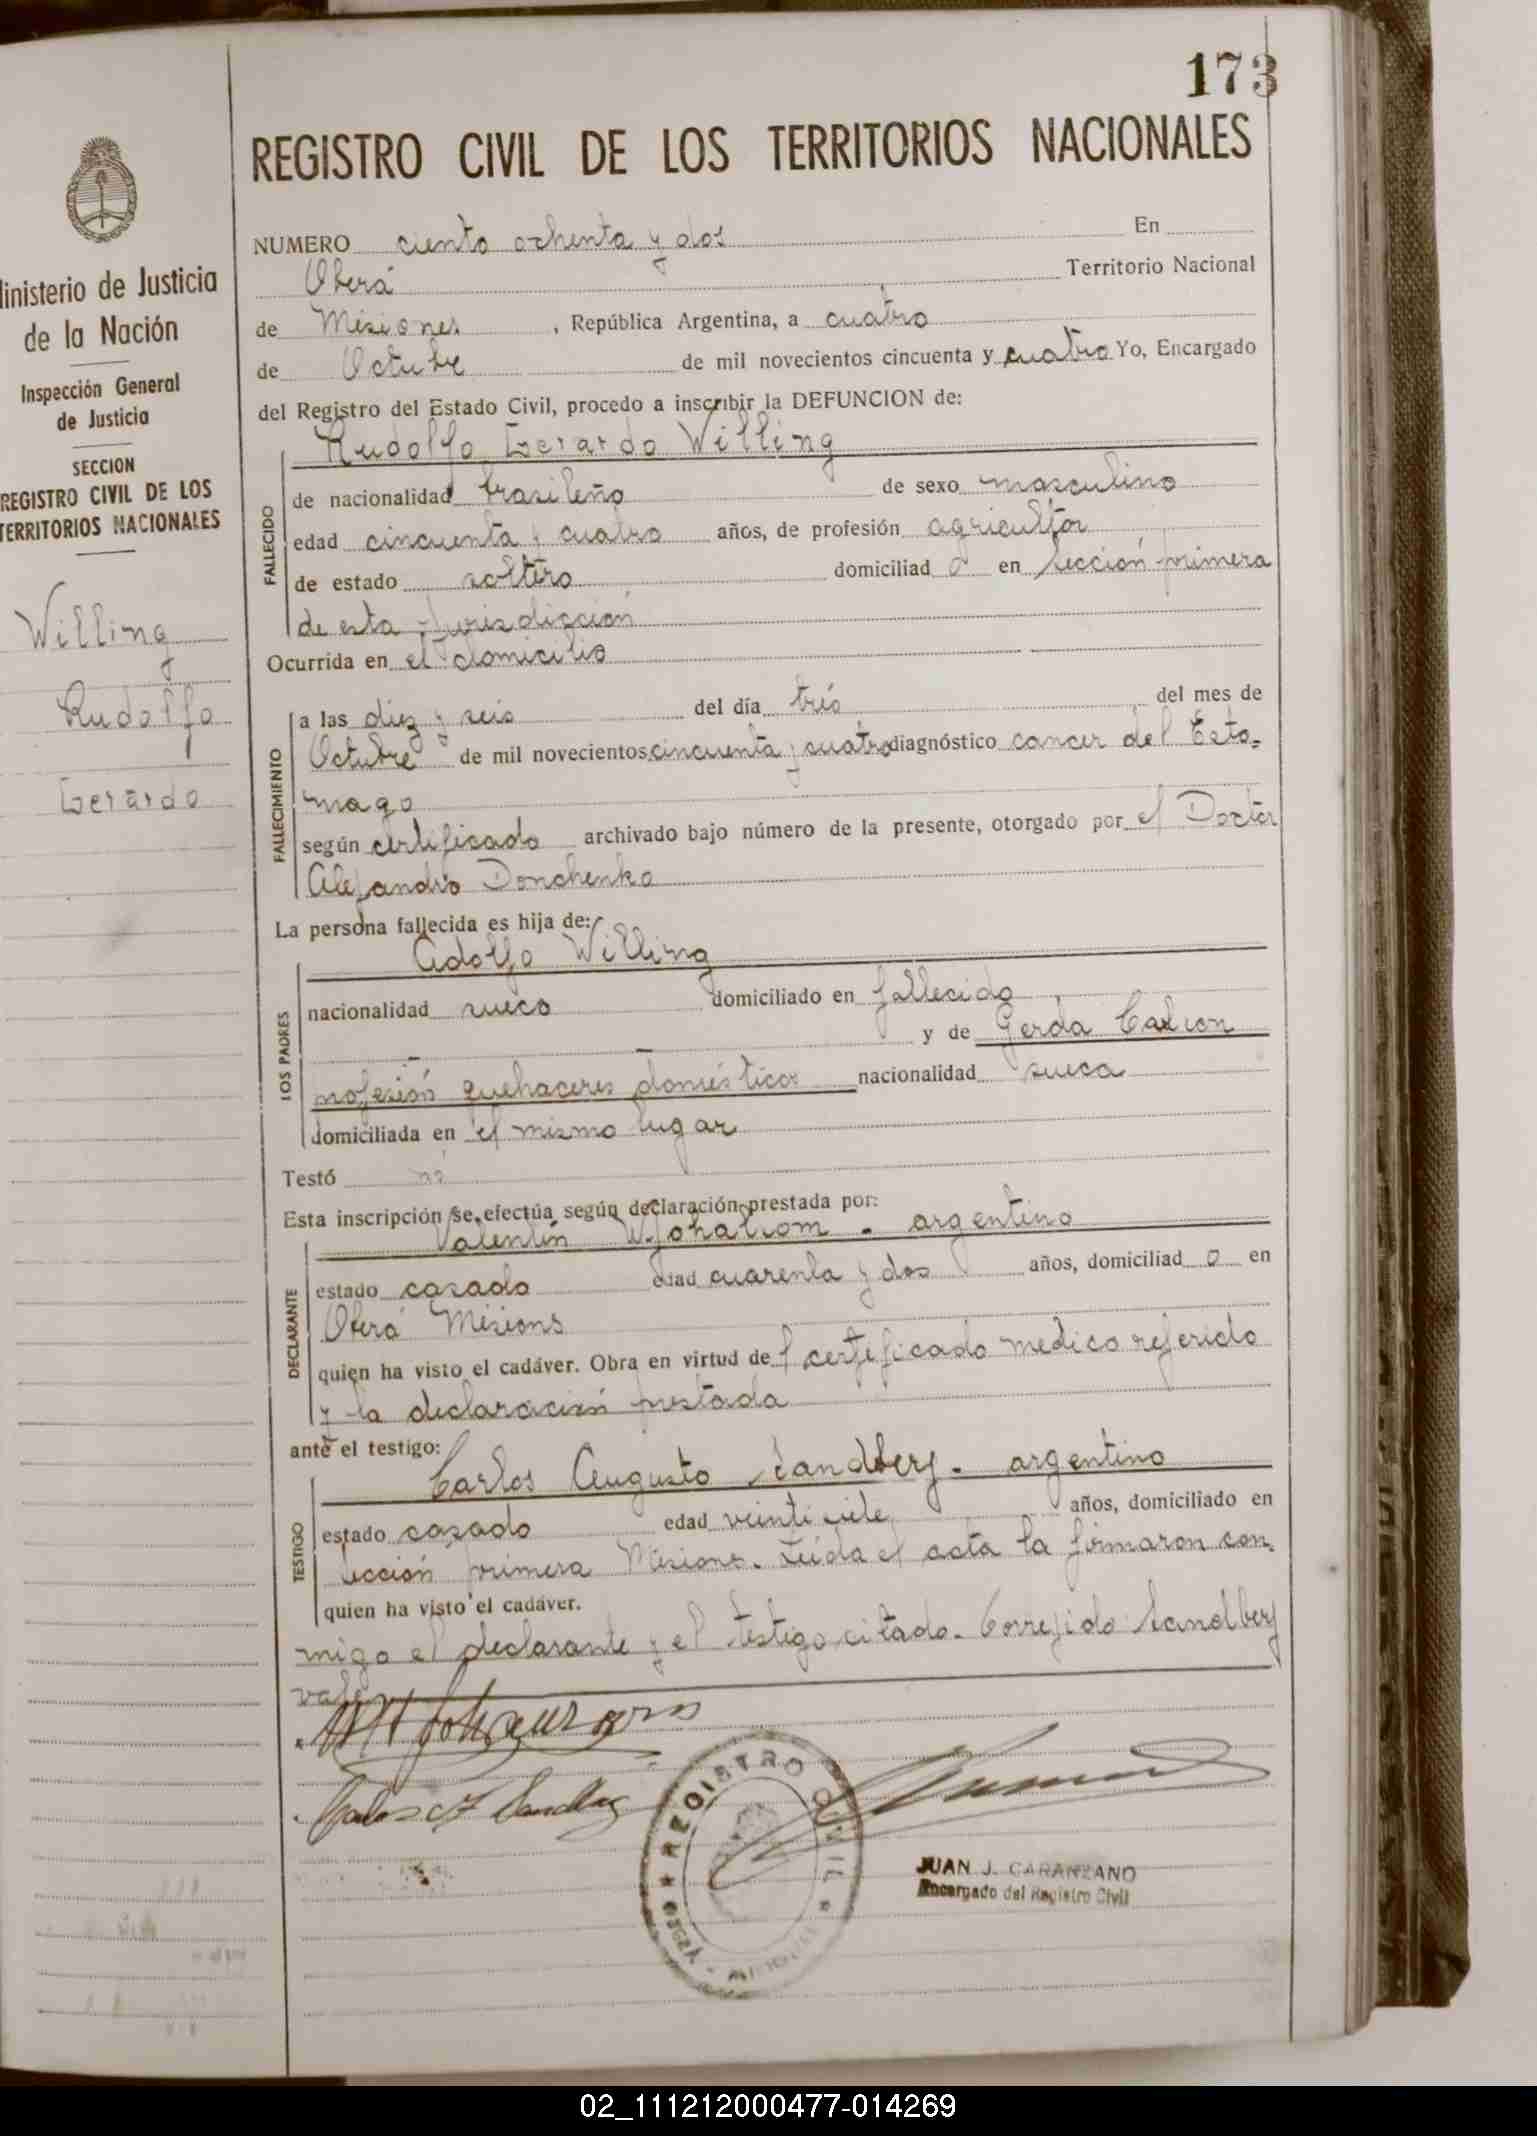 173
REGISTRO CIVIL DE LOS TERRITORIOS NACIONALES
Ministerio de Justicia
de la Nación
Inspección General
de Justicia
SECCION
REGISTRO CIVIL DE LOS
TERRITORIOS NACIONALES
Willing
Rudolfo
Gerardo
NUMERO ciento ochenta y dos En
Oberá Territorio Nacional
de Misiones, República Argentina, a cuatro
de Octubre de mil novecientos cincuenta y cuatro Yo, Encargado
del Registro del Estado Civil, procedo a inscribir la DEFUNCION de:
Rudolfo Gerardo Willing
FALLECIDO
de nacionalidad brasileño de sexo masculino
edad cincuenta y cuatro años, de profesión agricultor
de estado soltero domiciliad o en sección primera
de esta jurisdicción
Ocurrida en el domicilio
FALLECIMIENTO
a las diez y seis del día trés del mes de
Octubre de mil novecientos cincuenta y cuatro diagnóstico cancer del Esto-
mago
según certificado archivado bajo número de la presente, otorgado por el Doctor
Alejandro Donchenko
La persona fallecida es hija de:
LOS PADRES
Adolfo Willing
nacionalidad sueco domiciliado en fallecido
y de Gerda
profesión quehaceres domésticos nacionalidad sueca
domiciliada en el mismo lugar
Testó no
Esta inscripción se efectúa según declaración prestada por:
DECLARANTE
Valentin - argentino
estado casado edad cuarenta y dos años, domiciliad o en
Oberá Misions
quien ha visto el cadáver. Obra en virtud del certificado medico referido
y la declaración prestada
ante el testigo:
TESTIGO
Carlos Augusto Sandberg - argentino
estado casado edad veintisiete años, domiciliado en
sección primera Misions. Leida el acta la firmaron con-
quien ha visto el cadáver.
migo el declarante y el testigo citado. Correjido Sandberg
vale
REGISTRO CIVIL
OBERÁ - MISIONES
JUAN J. CARANZANO
Encargado del Registro Civil
02_111212000477-014269